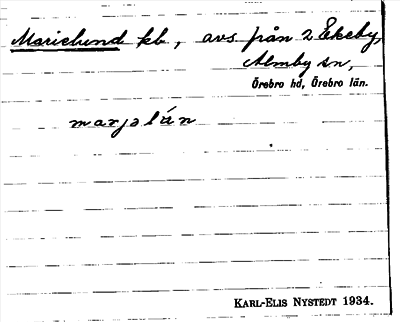 Marielund kb, avs. från 2 Ekeby,
Almby sn,
Örebro hd, Örebro län.
marjalún
KARL-ELIS NYSTEDT 1934.